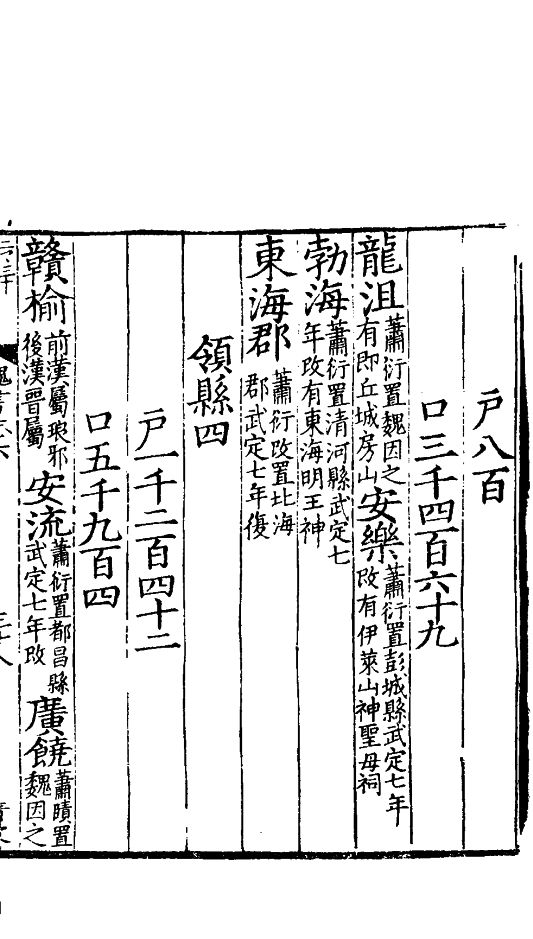 戸八百
口三千四百六十九
龍沮蕭衍置魏因之有即丘城房山安樂蕭衍置彭城縣武定七年改有伊萊山神聖母祠
勃海蕭衍置清河縣武定七年改有東海明王神
東海郡蕭衍改置北海郡武定七年復
領縣四
戸一千二百四十二
口五千九百四
贛榆前漢屬琅邪後漢晉屬安流蕭衍置都昌縣武定七年改廣饒蕭賾置魏因之